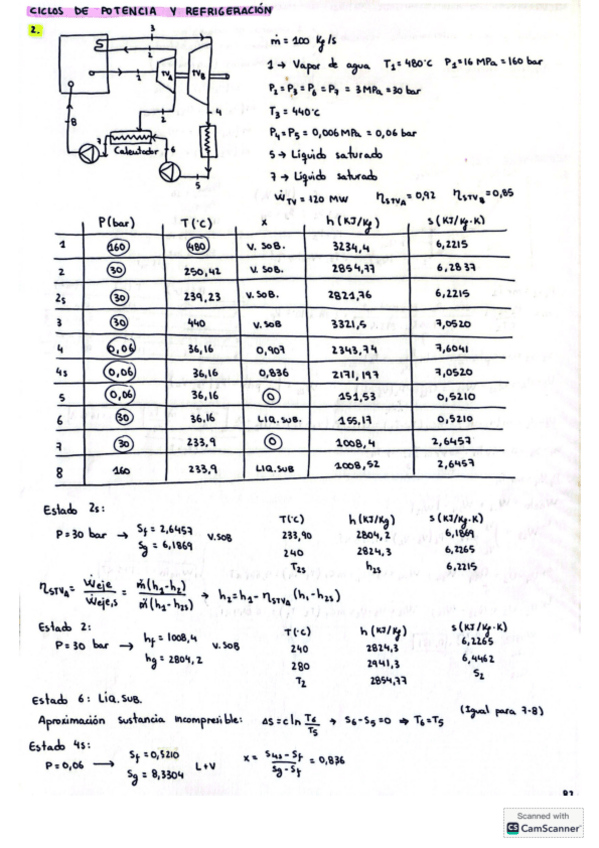 CICLOS DE POTENCIA Y REFRIGERACIÓN
2.
ṁ = 100 Kg/s
1 → Vapor de agua T₁ = 480°C P₁ = 16 MPa = 160 bar
P₂ = P₃ = P₆ = P₇ = 3 MPa = 30 bar
T₃ = 440°C
P₄ = P₅ = 0,006 MPa = 0,06 bar
5 → Líquido saturado
7 → Líquido saturado
Ẇ_TV = 120 MW η_STV_A = 0,92 η_STV_B = 0,85
3
1
2
TV_A
TV_B
2
4
8
7
Calentador
6
5
P(bar) T(°C) x h(KJ/Kg) s(KJ/Kg·K)
1 160 480 V. SOB. 3234,4 6,2215
2 30 250,42 V. SOB. 2854,77 6,2837
2s 30 239,23 V. SOB. 2821,76 6,2215
3 30 440 V. SOB 3321,5 7,0520
4 0,06 36,16 0,907 2343,74 7,6041
4s 0,06 36,16 0,836 2171,197 7,0520
5 0,06 36,16 0 151,53 0,5210
6 30 36,16 LIQ. SUB. 155,17 0,5210
7 30 233,9 0 1008,4 2,6457
8 160 233,9 LIQ. SUB 1008,52 2,6457
Estado 2s:
P = 30 bar → Sf = 2,6457 V.SOB
Sg = 6,1869
T(°C) h(KJ/Kg) s(KJ/Kg·K)
233,90 2804,2 6,1869
240 2824,3 6,2265
T₂s h₂s 6,2215
η_STV_A = Ẇeje / Ẇeje,s = ṁ(h₁-h₂) / ṁ(h₁-h₂s) → h₂ = h₁ - η_STV_A (h₁-h₂s)
Estado 2:
P = 30 bar → hf = 1008,4 V.SOB
hg = 2804,2
T(°C) h(KJ/Kg) s(KJ/Kg·K)
240 2824,3 6,2265
280 2941,3 6,4462
T₂ 2854,77 S₂
Estado 6: LIQ. SUB.
Aproximación sustancia incompresible: Δs = c ln T₆/T₅ → S₆-S₅=0 ⇒ T₆=T₅ (Igual para 7-8)
Estado 4s:
P = 0,06 → Sf = 0,5210 L+V x = (S₄s - Sf) / (Sg - Sf) = 0,836
Sg = 8,3304
Scanned with
CS CamScanner